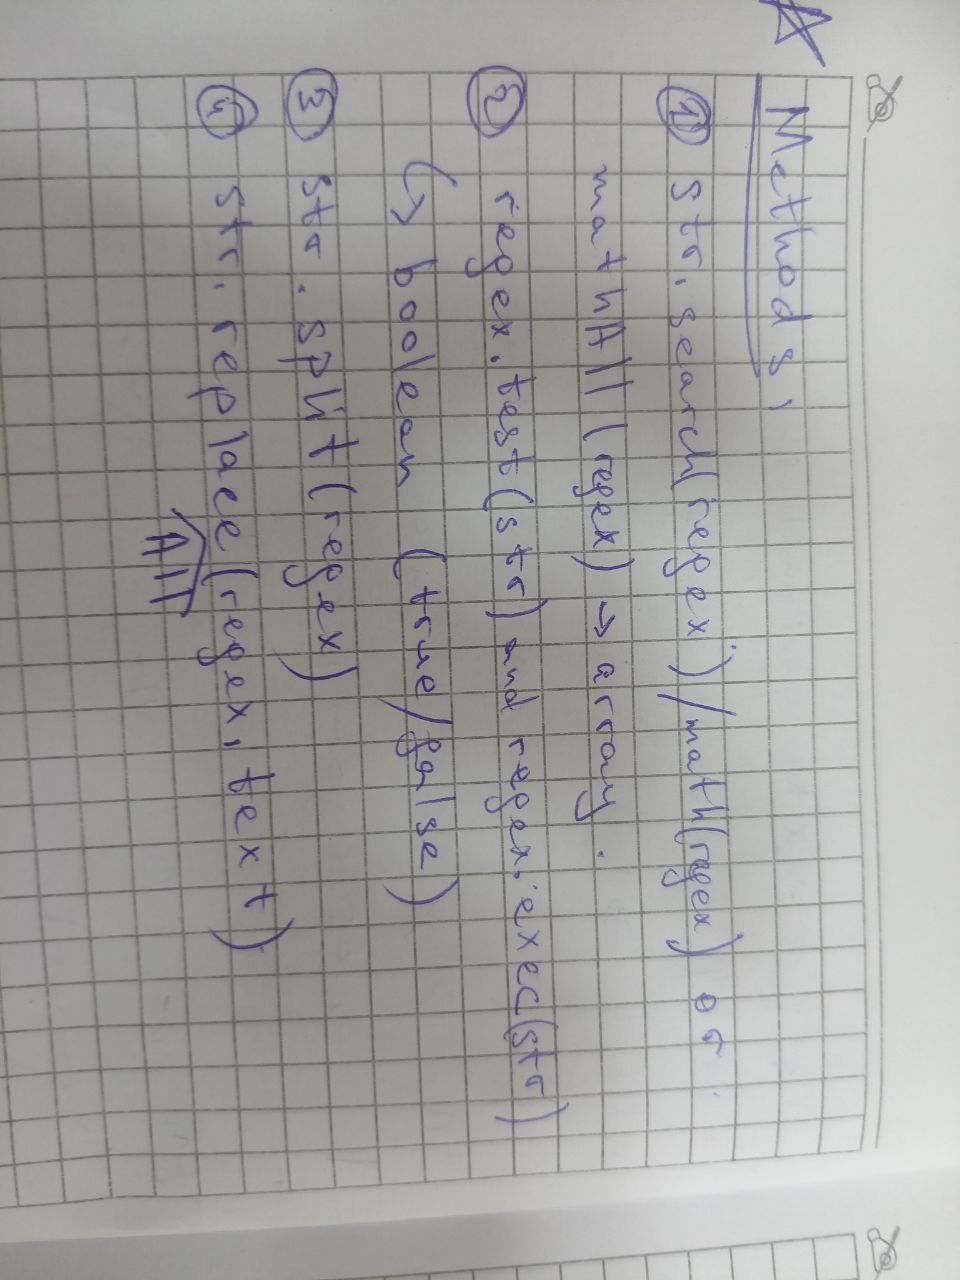 Methods,
① str.search(regex)/math(regex) or
mathAll(regex) → array.
② regex.test(str) and regex.exec(str)
↳ boolean (true/false)
③ str.split(regex)
④ str.replace(regex, text)
All